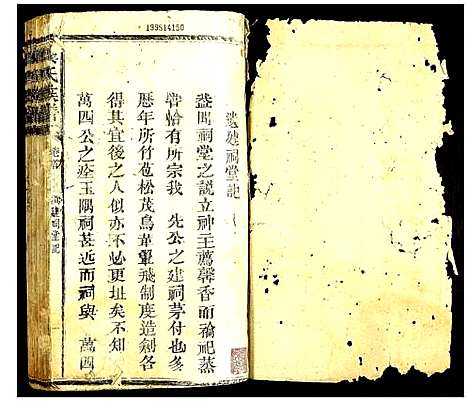 199514150
遷建祠堂記
蓋聞祠堂之說立神主薦馨香而禴祀蒸
嘗恰有所宗我 先公之建祠茅付也多
歷年所竹苞松茂鳥革翬飛制度造創各
得其宜後之人似亦不必更址矣不知
萬四公之瘞玉隅祠甚近而祠與 萬四
卷首
遷建祠堂記
一